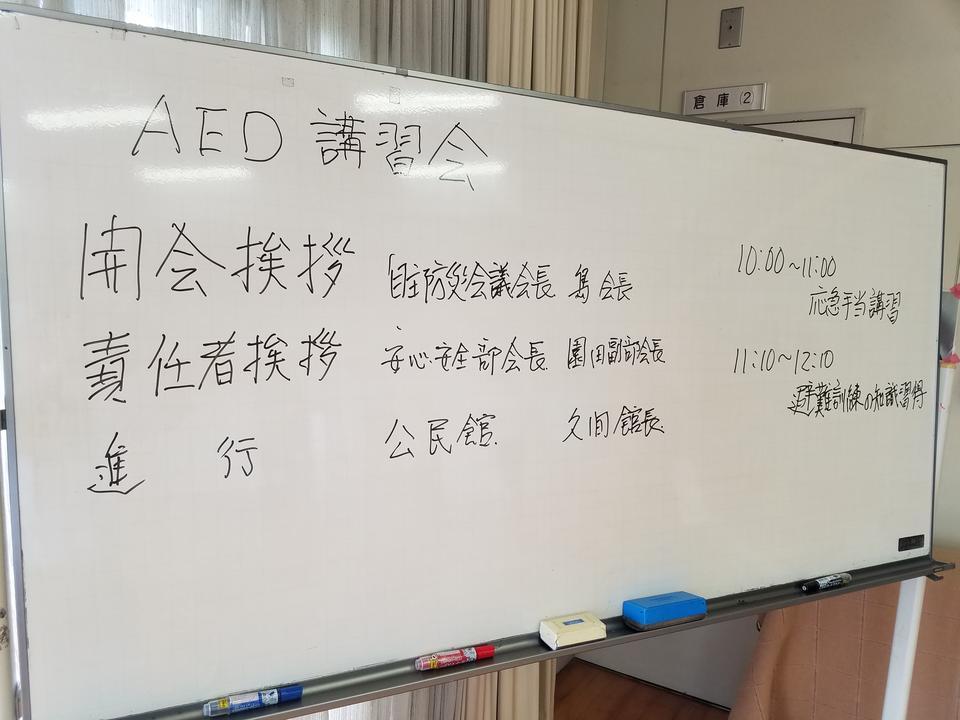 倉庫(2)
AED 講習会
開会挨拶 自主防災会議会長 島 会長
責任者挨拶 安心安全部会長 園田副部会長
進 行 公民館 久間館長
10:00~11:00
応急手当講習
11:10~12:10
避難訓練の知識習得